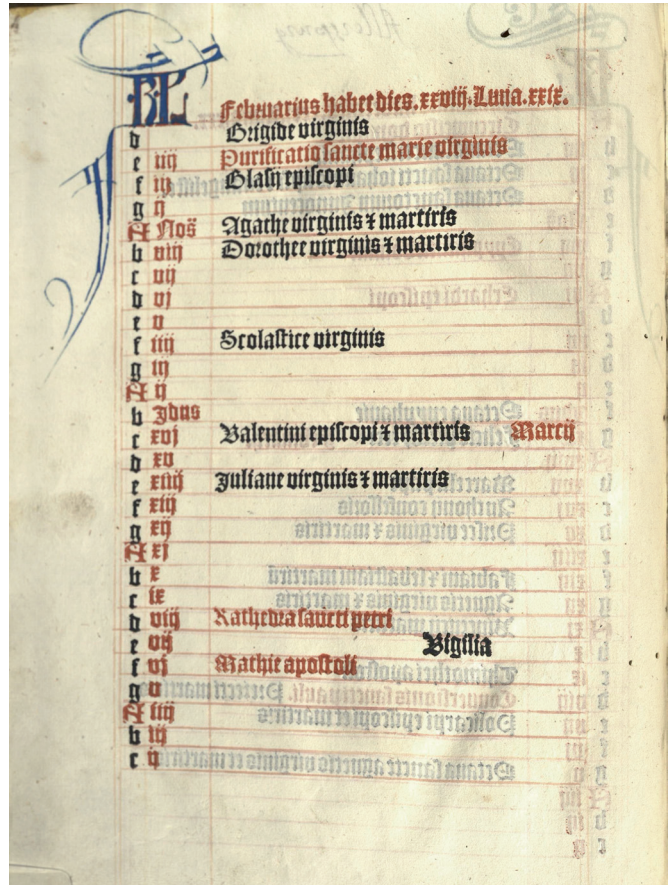 KL Februarius habet dies. xxviij. Luna. xxix.
d Brigide virginis
e iiij Purificatio sancte marie virginis
f iij Blasij episcopi
g ij
A Nos̄ Agathe virginis ⁊ martiris
b viij Dorothee virginis ⁊ martiris
c vij
d vj
e v
f iiij Scolastice virginis
g iij
A ij
b Jdus
c xvj Valentini episcopi ⁊ martiris Marcij
d xv
e xiiij Juliane virginis ⁊ martiris
f xiij
g xij
A xj
b x
c ix
d viij Kathedra sancti petri
e vij Vigilia
f vj Mathie apostoli
g v
A iiij
b iij
c ij